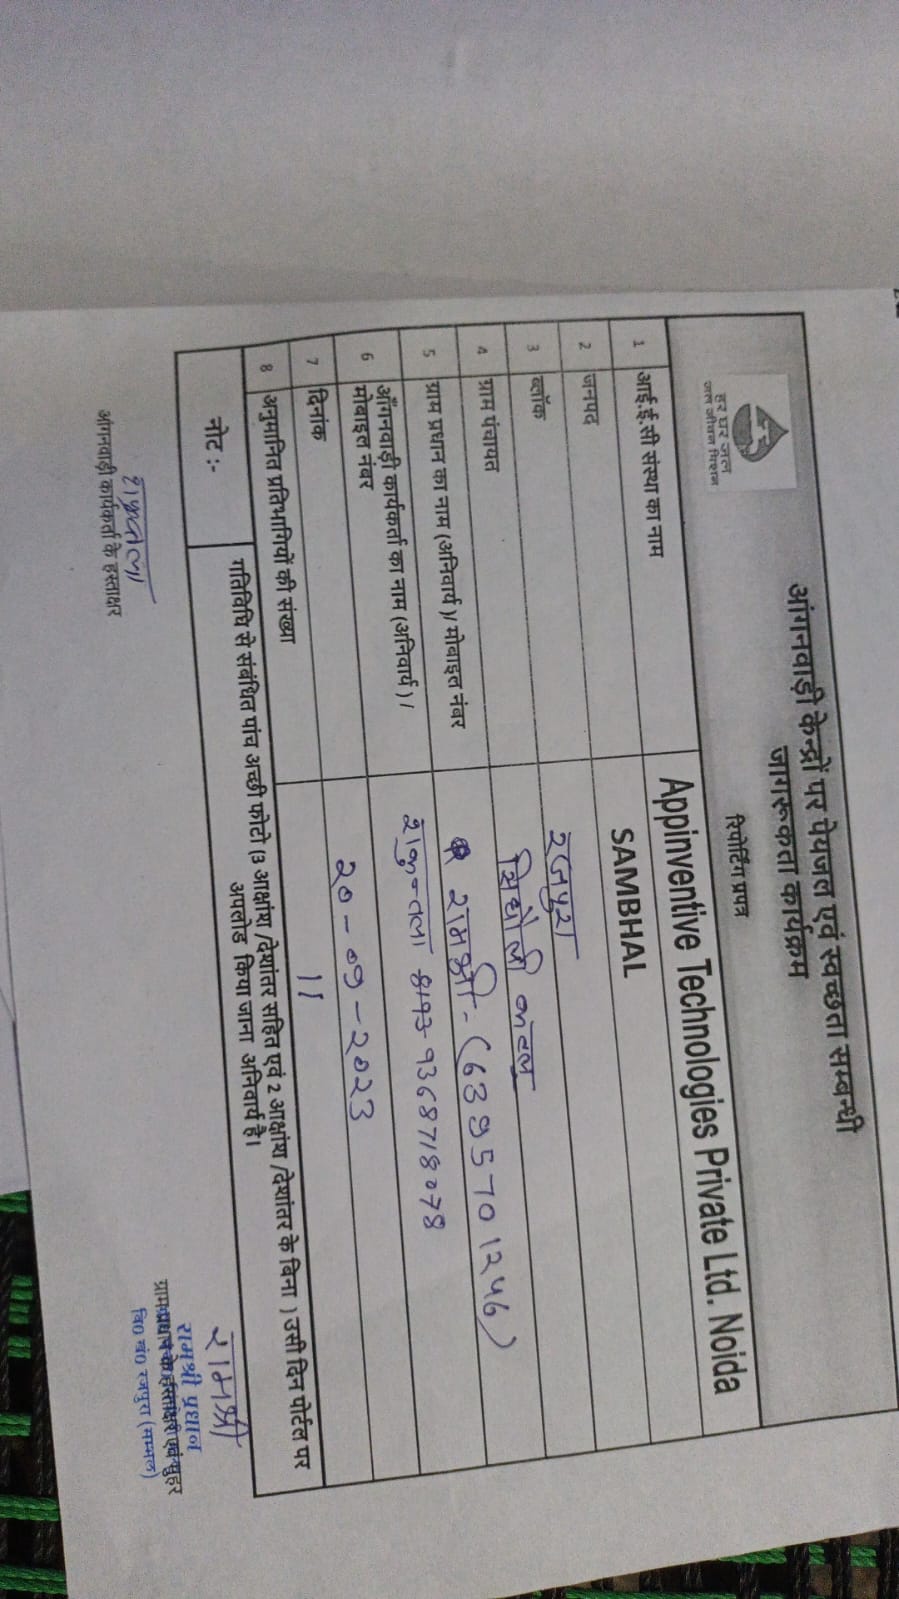 हर घर जल
जल जीवन मिशन
आंगनवाड़ी केन्द्रों पर पेयजल एवं स्वच्छता सम्बन्धी
जागरूकता कार्यक्रम
रिपोर्टिंग प्रपत्र
1 आई.ई.सी संस्था का नाम Appinventive Technologies Private Ltd. Noida
2 जनपद SAMBHAL
3 ब्लॉक रजपुरा
4 ग्राम पंचायत सिघौली कल्लू
5 ग्राम प्रधान का नाम (अनिवार्य)/ मोबाइल नंबर रामश्री - (6395701246)
6 ऑगनवाड़ी कार्यकर्ता का नाम (अनिवार्य) /
मोबाइल नंबर शकुन्तला 9368718078
7 दिनांक 20-09-2023
8 अनुमानित प्रतिभागियों की संख्या 11
नोट :- गतिविधि से संबंधित पांच अच्छी फोटो (3 आक्षांश /देशांतर सहित एवं 2 आक्षांश /देशांतर के बिना ) उसी दिन पोर्टल पर
अपलोड किया जाना अनिवार्य है।
शकुन्तला
आंगनवाड़ी कार्यकर्ता के हस्ताक्षर
रामश्री
रामश्री प्रधान
ग्राम प्रधान के हस्ताक्षर एवं मुहर
वि0 खं0 रजपुरा (सम्भल)